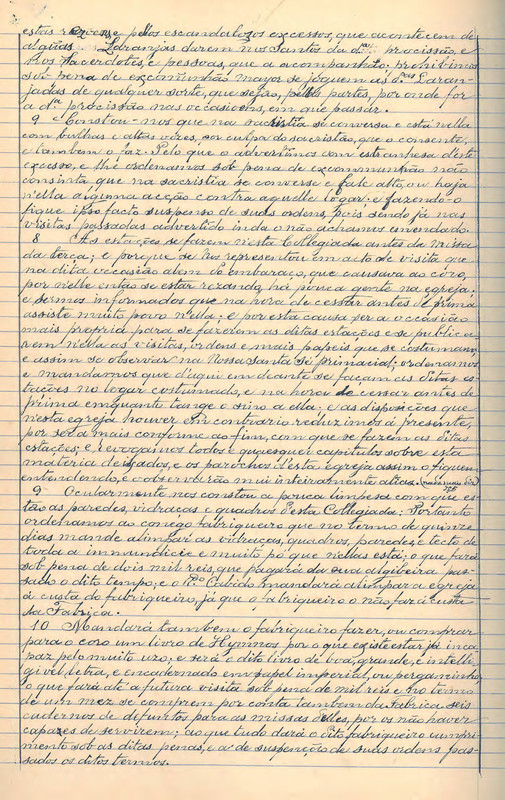 estas reservese pellos escandalozos excessos, que acontecem de
algũas Laranjas darem nos Santos da d.ª procissão, e
nos sacerdotes, e pessoas, que a acompanhão: prohibimos
sob pena de excomunhão mayor se joguem as d.as Laran-
jadas de qualquer sorte, que sejão, pellas partes, por onde for
a d.ª procissão nas occasioens, em que passar.
9 Constou-nos que na sacristia se conversa e está nella
com bulhas e altas vozes, por culpa do sacristão, que o consente,
e tambem o faz. Pelo que o advertimos com estranhesa d'este
excesso, e lhe ordenamos sob pena de excommunhão não
consinta que na sacristia se converse e fale alto, ou haja
n'ella alguma acção contra aquelle logar: e fazendo-o
fique ipso facto suspenso de suas ordens, pois sendo já nas
visitas passadas advertido inda o não achamos emendado.
8 As estações se fazem n'esta Collegiada antes da missa
da terça; e porque se nos representou em acto de visita que
na dita occasião alem do embaraço, que causava ao côro,
por n'elle então se estar rezando, há pouca gente na egreja:
e somos informados que na hora de cessar antes de prima
assiste muito povo n'ella; e por esta causa ser a occasião
mais propria para se fazerem as ditas estações e se publica-
rem n'ella as visitas, ordens e mais papeis que se costumam,
e assim se observar na Nossa Santa Sé primacial; ordenamos
e mandamos que d'aqui em deante se façam as ditas es-
tações no logar costumado, e na hora de cessar antes de
prima emquanto tange o sino a ella: e as disposições que
n'esta egreja houver em contrario reduzimos á presente,
por ser a mais conforme ao fim, com que se fazem as ditas
estações; e revogamos todos e quaesquer capitulos sobre esta
materia deixados, e os parochos d'esta egreja assim o fiquem
entendendo, e observarão mui inteiramente
9 Ocularmente nos constou a pouca limpesa com que es-
tão as paredes, vidraças e quadros d'esta Collegiada: Portanto
ordenamos ao conego fabriqueiro que no termo de quinze
dias mande alimpar as vidraças, quadros, paredes, e tecto de
toda a immundicie e muito pó que nellas está; o que fará
sob pena de dois mil reis, que pagará da sua algibeira pas-
sado o dito tempo; e o R.º Cabido mandará alimpar a egreja
á custa do fabriqueiro, já que o fabriqueiro o não faz á custa
da Fabrica.
10 Mandará tambem o fabriqueiro fazer, ou comprar
para o coro um livro de Hymnos, por o que existe estar já inca-
paz pelo muito uso, e será o dito livro de boa, grande, e intelli-
givel letra, e encadernado em papel imperial, ou pergaminho,
o que fará até a futura visita sob pena de mil reis e no termo
de um mez se comprem por conta tambem da fabrica seis
cadernos de defuntos para as missas d'elles, por os não haver
capazes de servirem; ao que tudo dará o dito fabriqueiro cumpri-
mento sob as ditas penas, e a de suspenção de suas ordens pas-
sados os ditos termos.